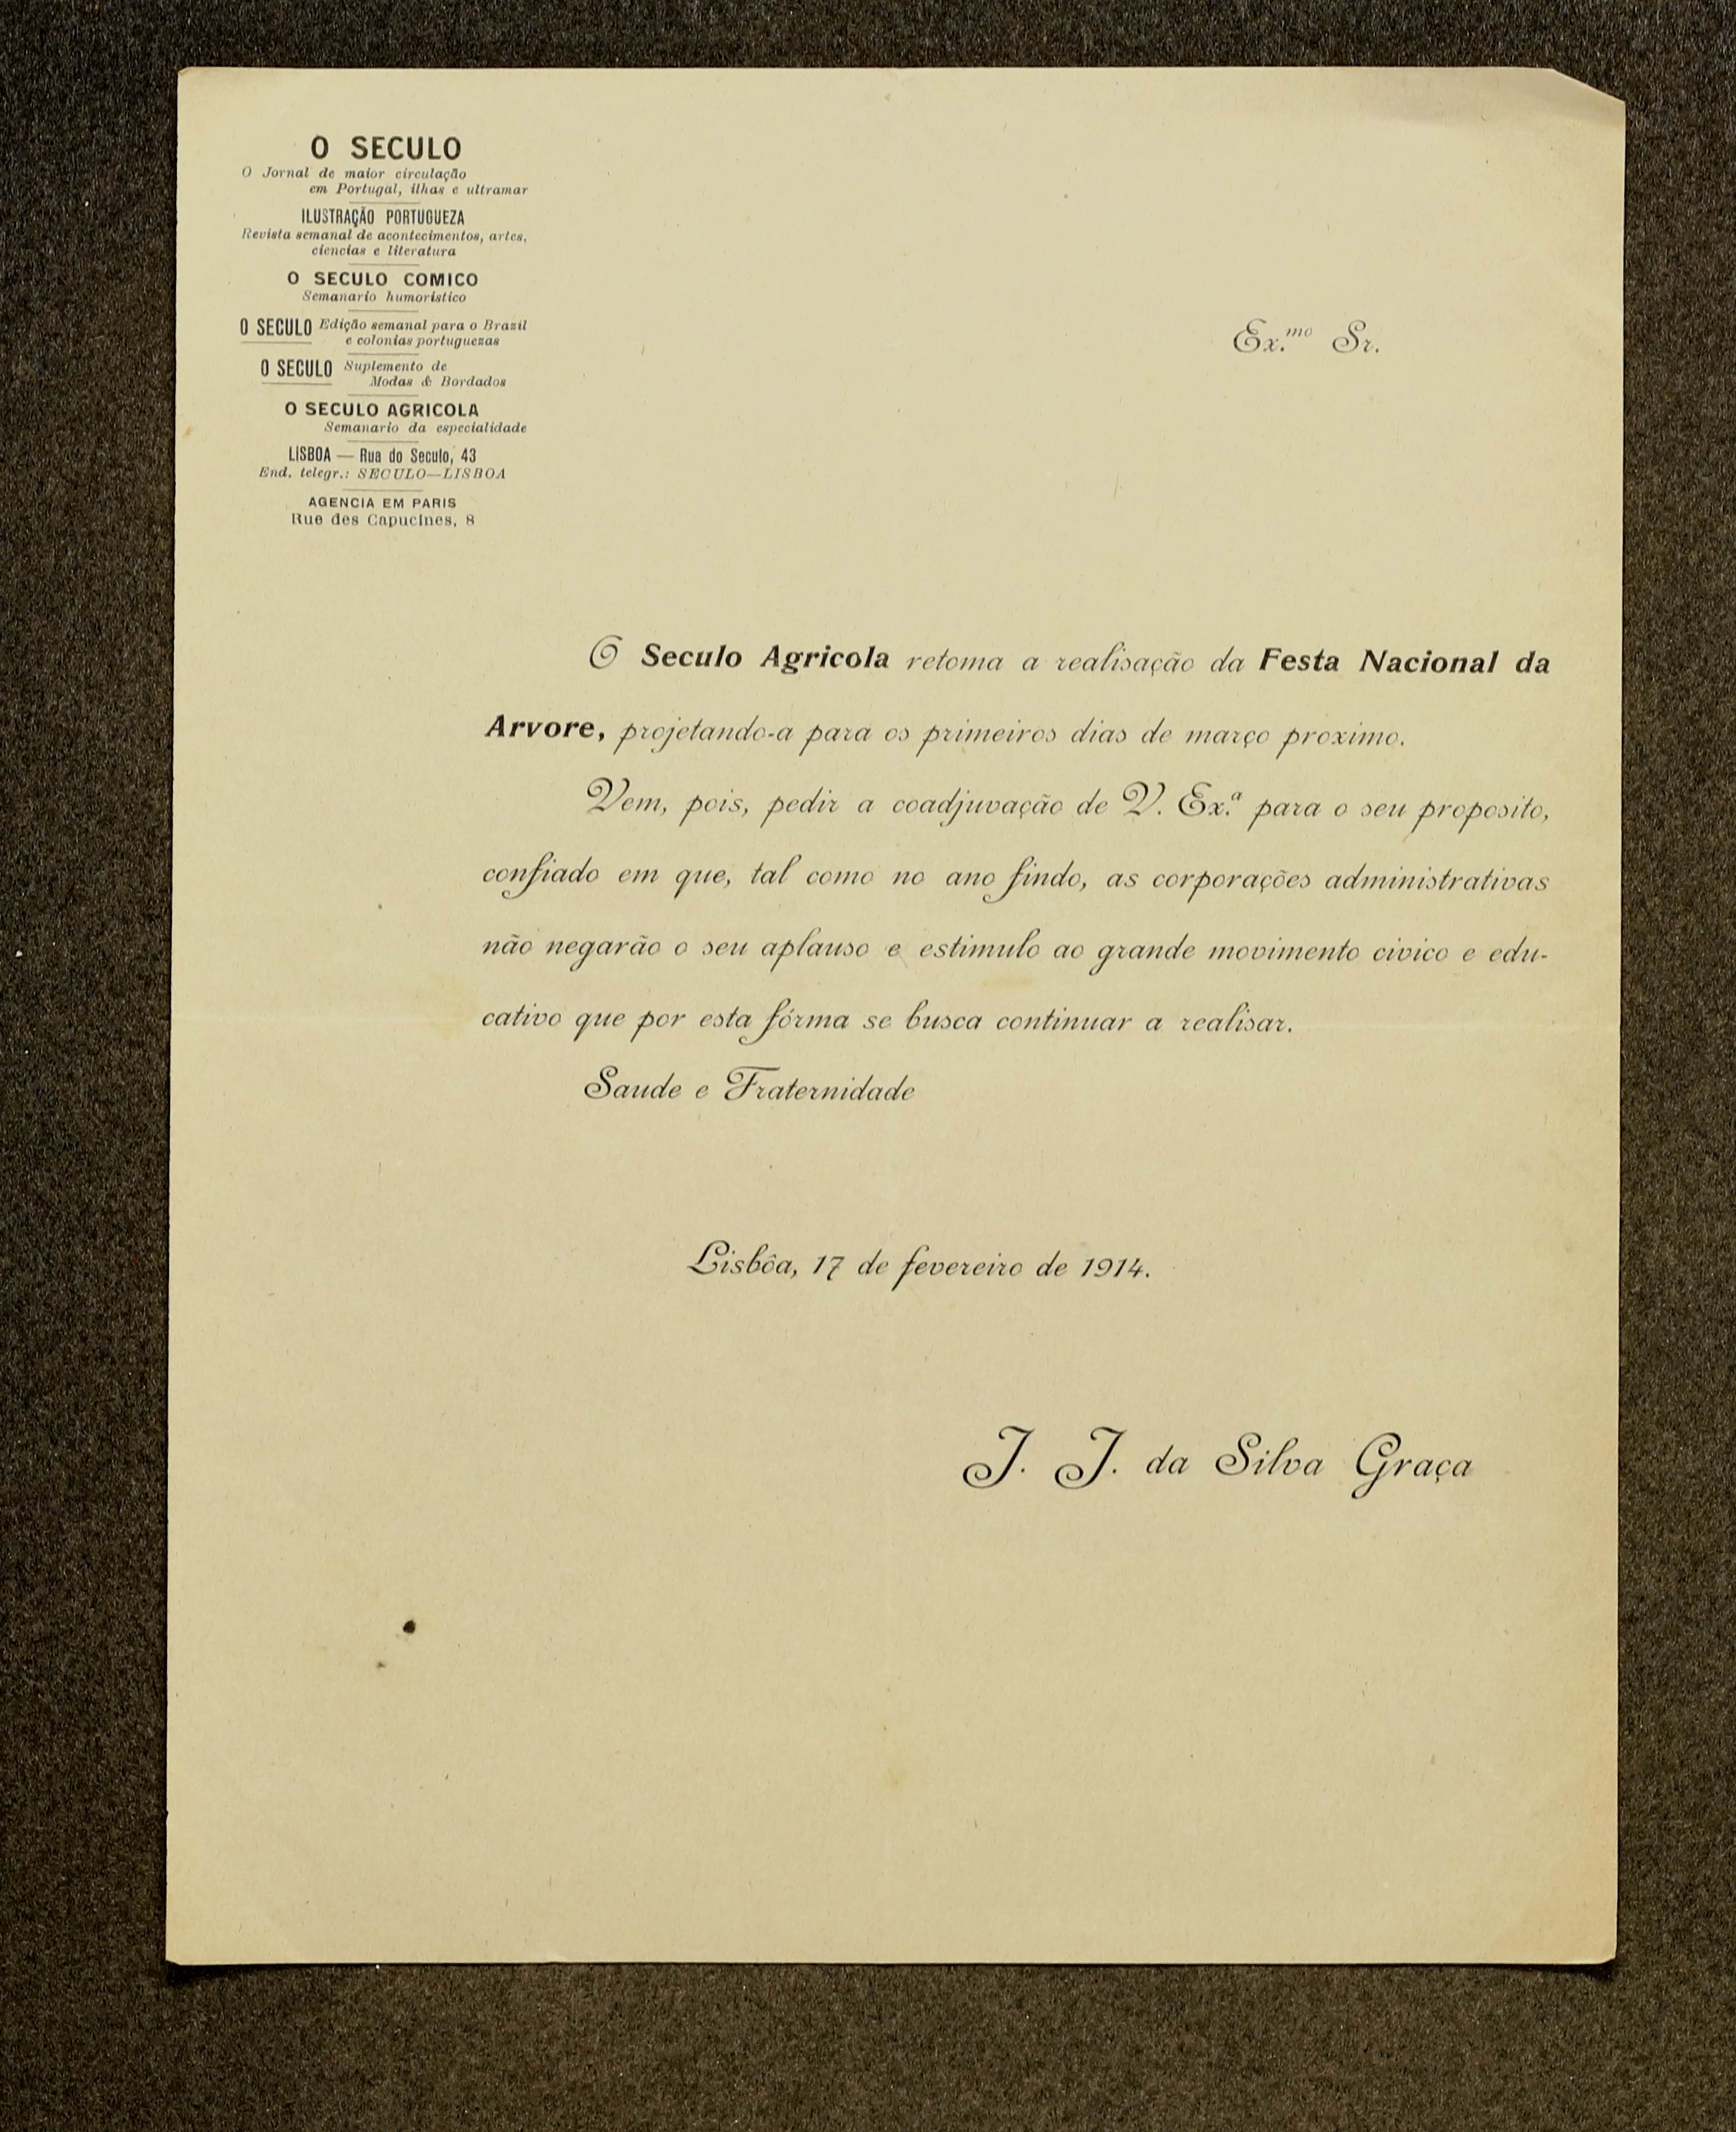 O SECULO
O Jornal de maior circulação
em Portugal, ilhas e ultramar
ILUSTRAÇÃO PORTUGUEZA
Revista semanal de acontecimentos, artes,
ciencias e literatura
O SECULO COMICO
Semanario humoristico
O SECULO Edição semanal para o Brazil
e colonias portuguezas
O SECULO Suplemento de
Modas & Bordados
O SECULO AGRICOLA
Semanario da especialidade
LISBOA — Rua do Seculo, 43
End. telegr.: SECULO—LISBOA
AGENCIA EM PARIS
Rue des Capucines, 8
Ex.mo Sr.
O Seculo Agricola retoma a realisação da Festa Nacional da
Arvore, projetando-a para os primeiros dias de março proximo.
Vem, pois, pedir a coadjuvação de V. Ex.ª para o seu proposito,
confiado em que, tal como no ano findo, as corporações administrativas
não negarão o seu aplauso e estimulo ao grande movimento civico e edu-
cativo que por esta fórma se busca continuar a realisar.
Saude e Fraternidade
Lisbôa, 17 de fevereiro de 1914.
J. J. da Silva Graça